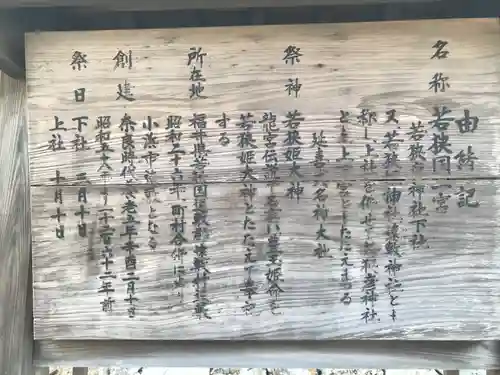 由緒記
名称 若狭国一宮
若狭彦神社下社
又 若狭姫神社遠敷神社とも
称し上社を併せて若狭彦神社
とも上下宮ともたたえまつる
延喜式名神大社
祭神 若狭姫大神
龍宮伝説で名高い豊玉姫命を
若狭姫大神とたたえて奉祀
する
所在地 福井県若狭国遠敷郡遠敷村遠敷
昭和二十六年 町村合併により
小浜市遠敷となる
創建 奈良時代養老五年二月十日
昭和五十八年より千二百六十二年前
祭日 下社 三月十日
上社 十月十日